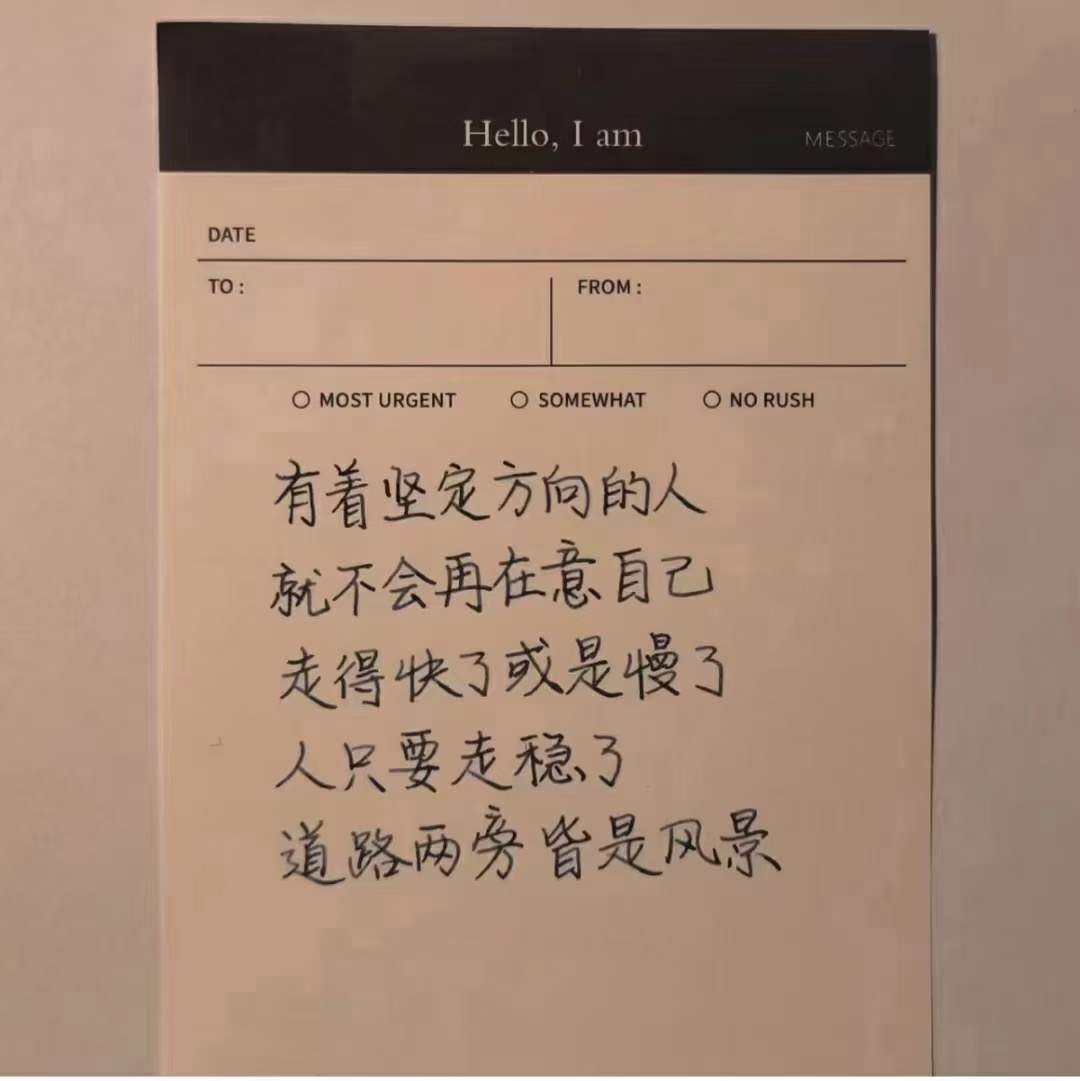 Hello, I am
MESSAGE
DATE
TO :
FROM :
MOST URGENT
SOMEWHAT
NO RUSH
有着坚定方向的人
就不会再在意自己
走得快了或是慢了
人只要走稳了
道路两旁皆是风景